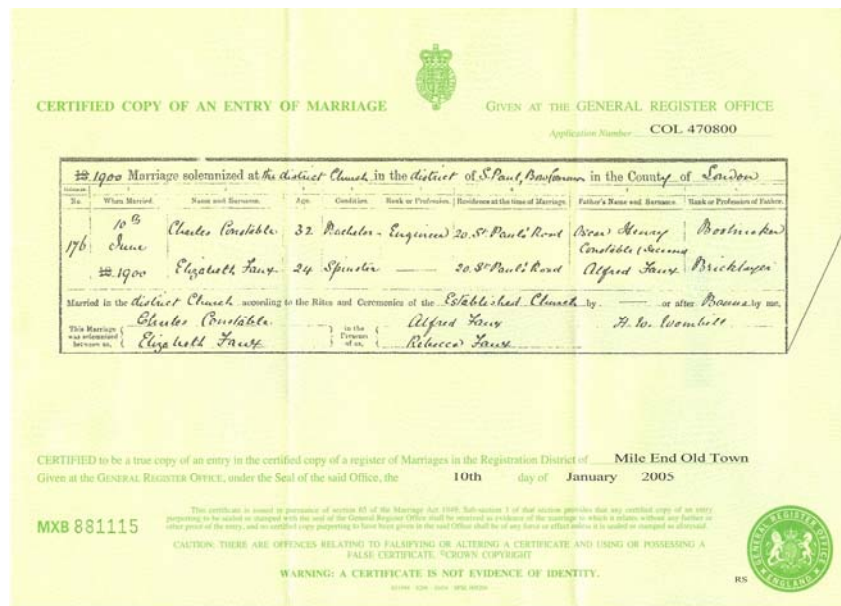 CERTIFIED COPY OF AN ENTRY OF MARRIAGE GIVEN AT THE GENERAL REGISTER OFFICE
Application Number COL 470800
1900 Marriage solemnized at the district Church in the district of S. Paul, Bow Common in the County of London
No. When Married. Name and Surname. Age. Condition. Rank or Profession. Residence at the time of Marriage. Father's Name and Surname. Rank or Profession of Father.
176 10th June 1900
Charles Constable 32 Bachelor Engineer 20. St. Paul's Road Oscar Henry Constable (deceased) Bootmaker
Elizabeth Faux 24 Spinster — 20. St Paul's Road Alfred Faux Bricklayer
Married in the district Church according to the Rites and Ceremonies of the Established Church by — or after Banns by me,
This Marriage was solemnized between us, { Charles Constable Elizabeth Faux } in the Presence of us, { Alfred Faux Rebecca Faux
CERTIFIED to be a true copy of an entry in the certified copy of a register of Marriages in the Registration District of Mile End Old Town
Given at the GENERAL REGISTER OFFICE, under the Seal of the said Office, the 10th day of January 2005
MXB 881115
This certificate is issued in pursuance of section 65 of the Marriage Act 1949. Sub-section 3 of that section provides that any certified copy of an entry
purporting to be sealed or stamped with the seal of the General Register Office shall be received as evidence of the marriage to which it relates without any further or
other proof of the entry, and no certified copy purporting to have been given in the said Office shall be of any force or effect unless it is sealed or stamped as aforesaid.
CAUTION: THERE ARE OFFENCES RELATING TO FALSIFYING OR ALTERING A CERTIFICATE AND USING OR POSSESSING A
FALSE CERTIFICATE. ©CROWN COPYRIGHT
WARNING: A CERTIFICATE IS NOT EVIDENCE OF IDENTITY.
GENERAL REGISTER OFFICE
ENGLAND
RS